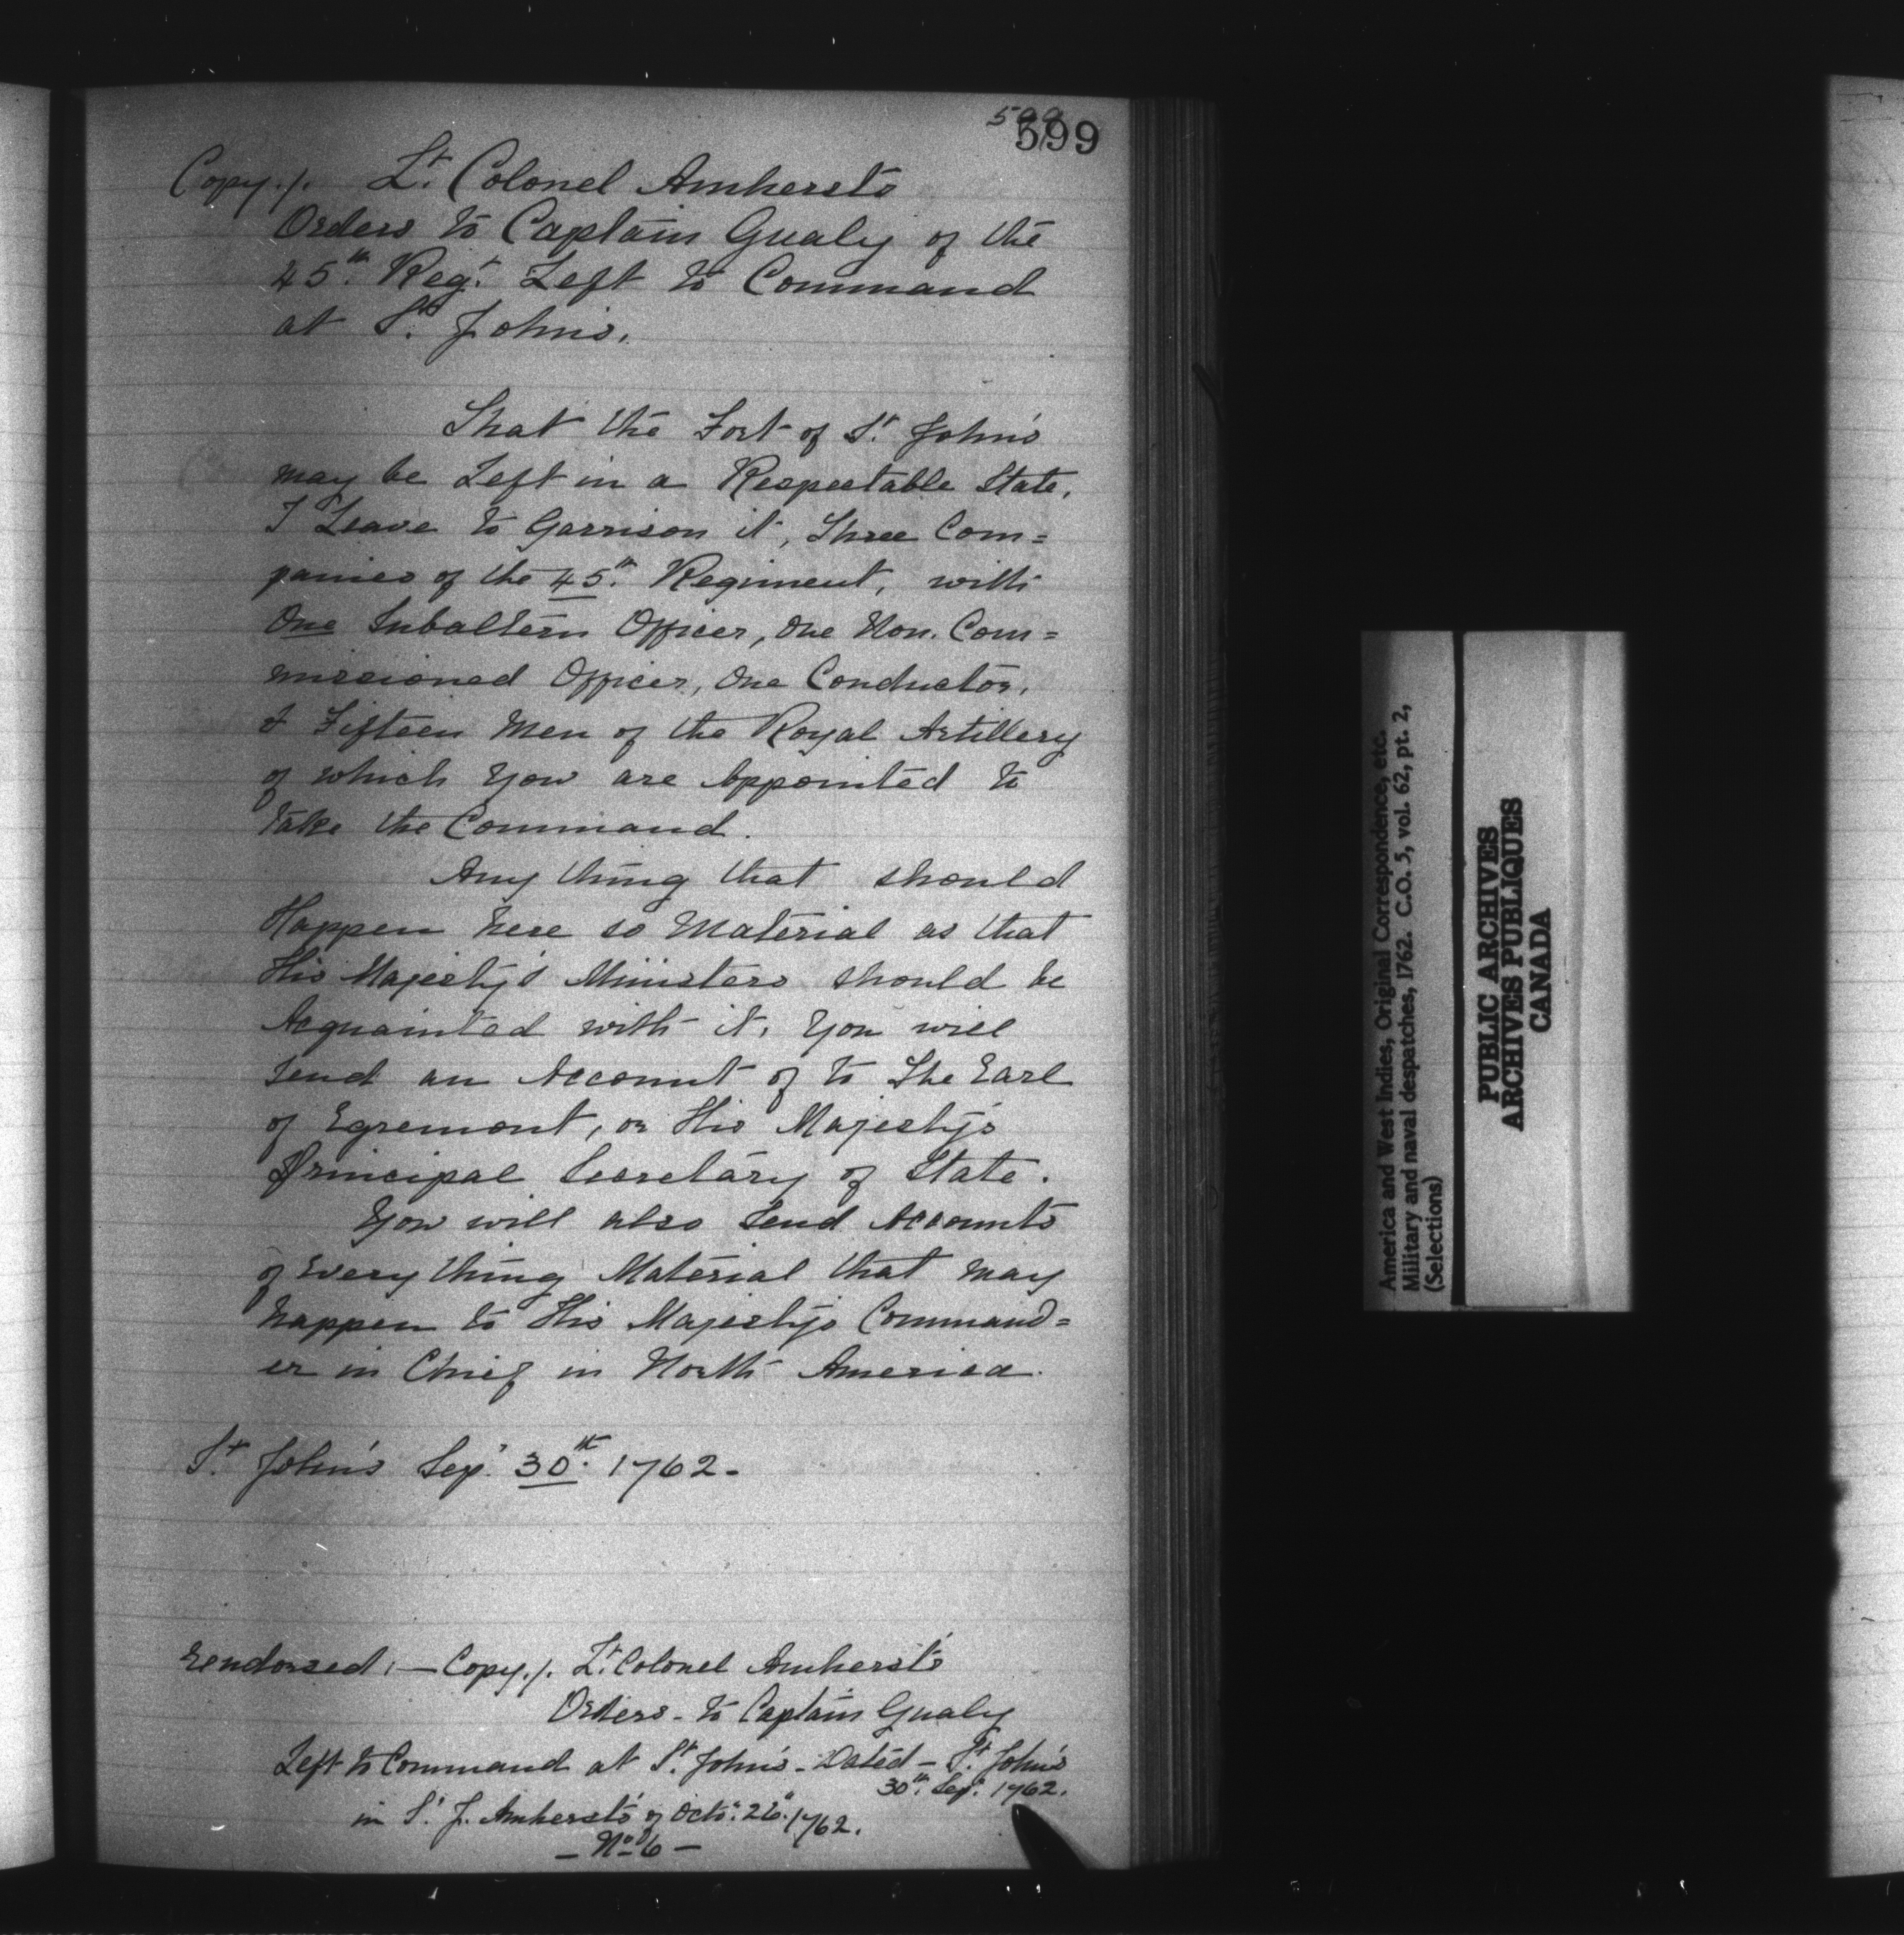 599
Copy./. Lt. Colonel Amherst's
Orders to Captain Gualy of the
45th. Regt. Left to Command
at St. John's.
That the Fort of St. John's
may be Left in a Respectable State,
I Leave to Garrison it, Three Com=
panies of the 45th. Regiment, with
One Subaltern Officer, One Non. Com=
missioned Officer, One Conductor,
& Fifteen Men of the Royal Artillery
of which You are Appointed to
take the Command.
Any thing that should
Happen here so Material as that
His Majesty's Ministers should be
Acquainted with it, You will
Send an Account of to The Earl
of Egremont, or His Majesty's
Principal Secretary of State.
You will also Send Accounts
of Every thing Material that may
happen to His Majesty's Command=
er in Chief in North America.
St. John's Sep. 30th. 1762.
Eendorsed: — Copy./. Lt. Colonel Amherst's
Orders - to Captain Gualy
Left to Command at St. John's - Dated - St. John's
30th. Sep. 1762.
in Sr. J. Amherst's of Octo. 26. 1762.
— No. 6 —
America and West Indies, Original Correspondence, etc.
Military and naval despatches, 1762. C.O. 5, vol. 62, pt. 2,
(Selections)
PUBLIC ARCHIVES
ARCHIVES PUBLIQUES
CANADA